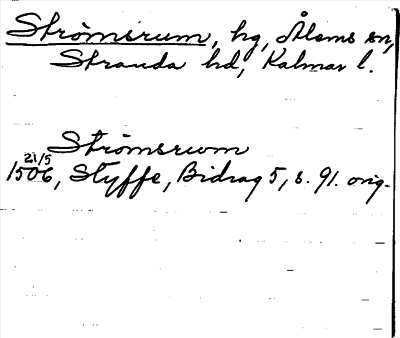 Strömsrum, hg, Ålems sn,
Stranda hd, Kalmar l.
Strömsrwm
21/5
1506, Styffe, Bidrag 5, s. 91. orig.